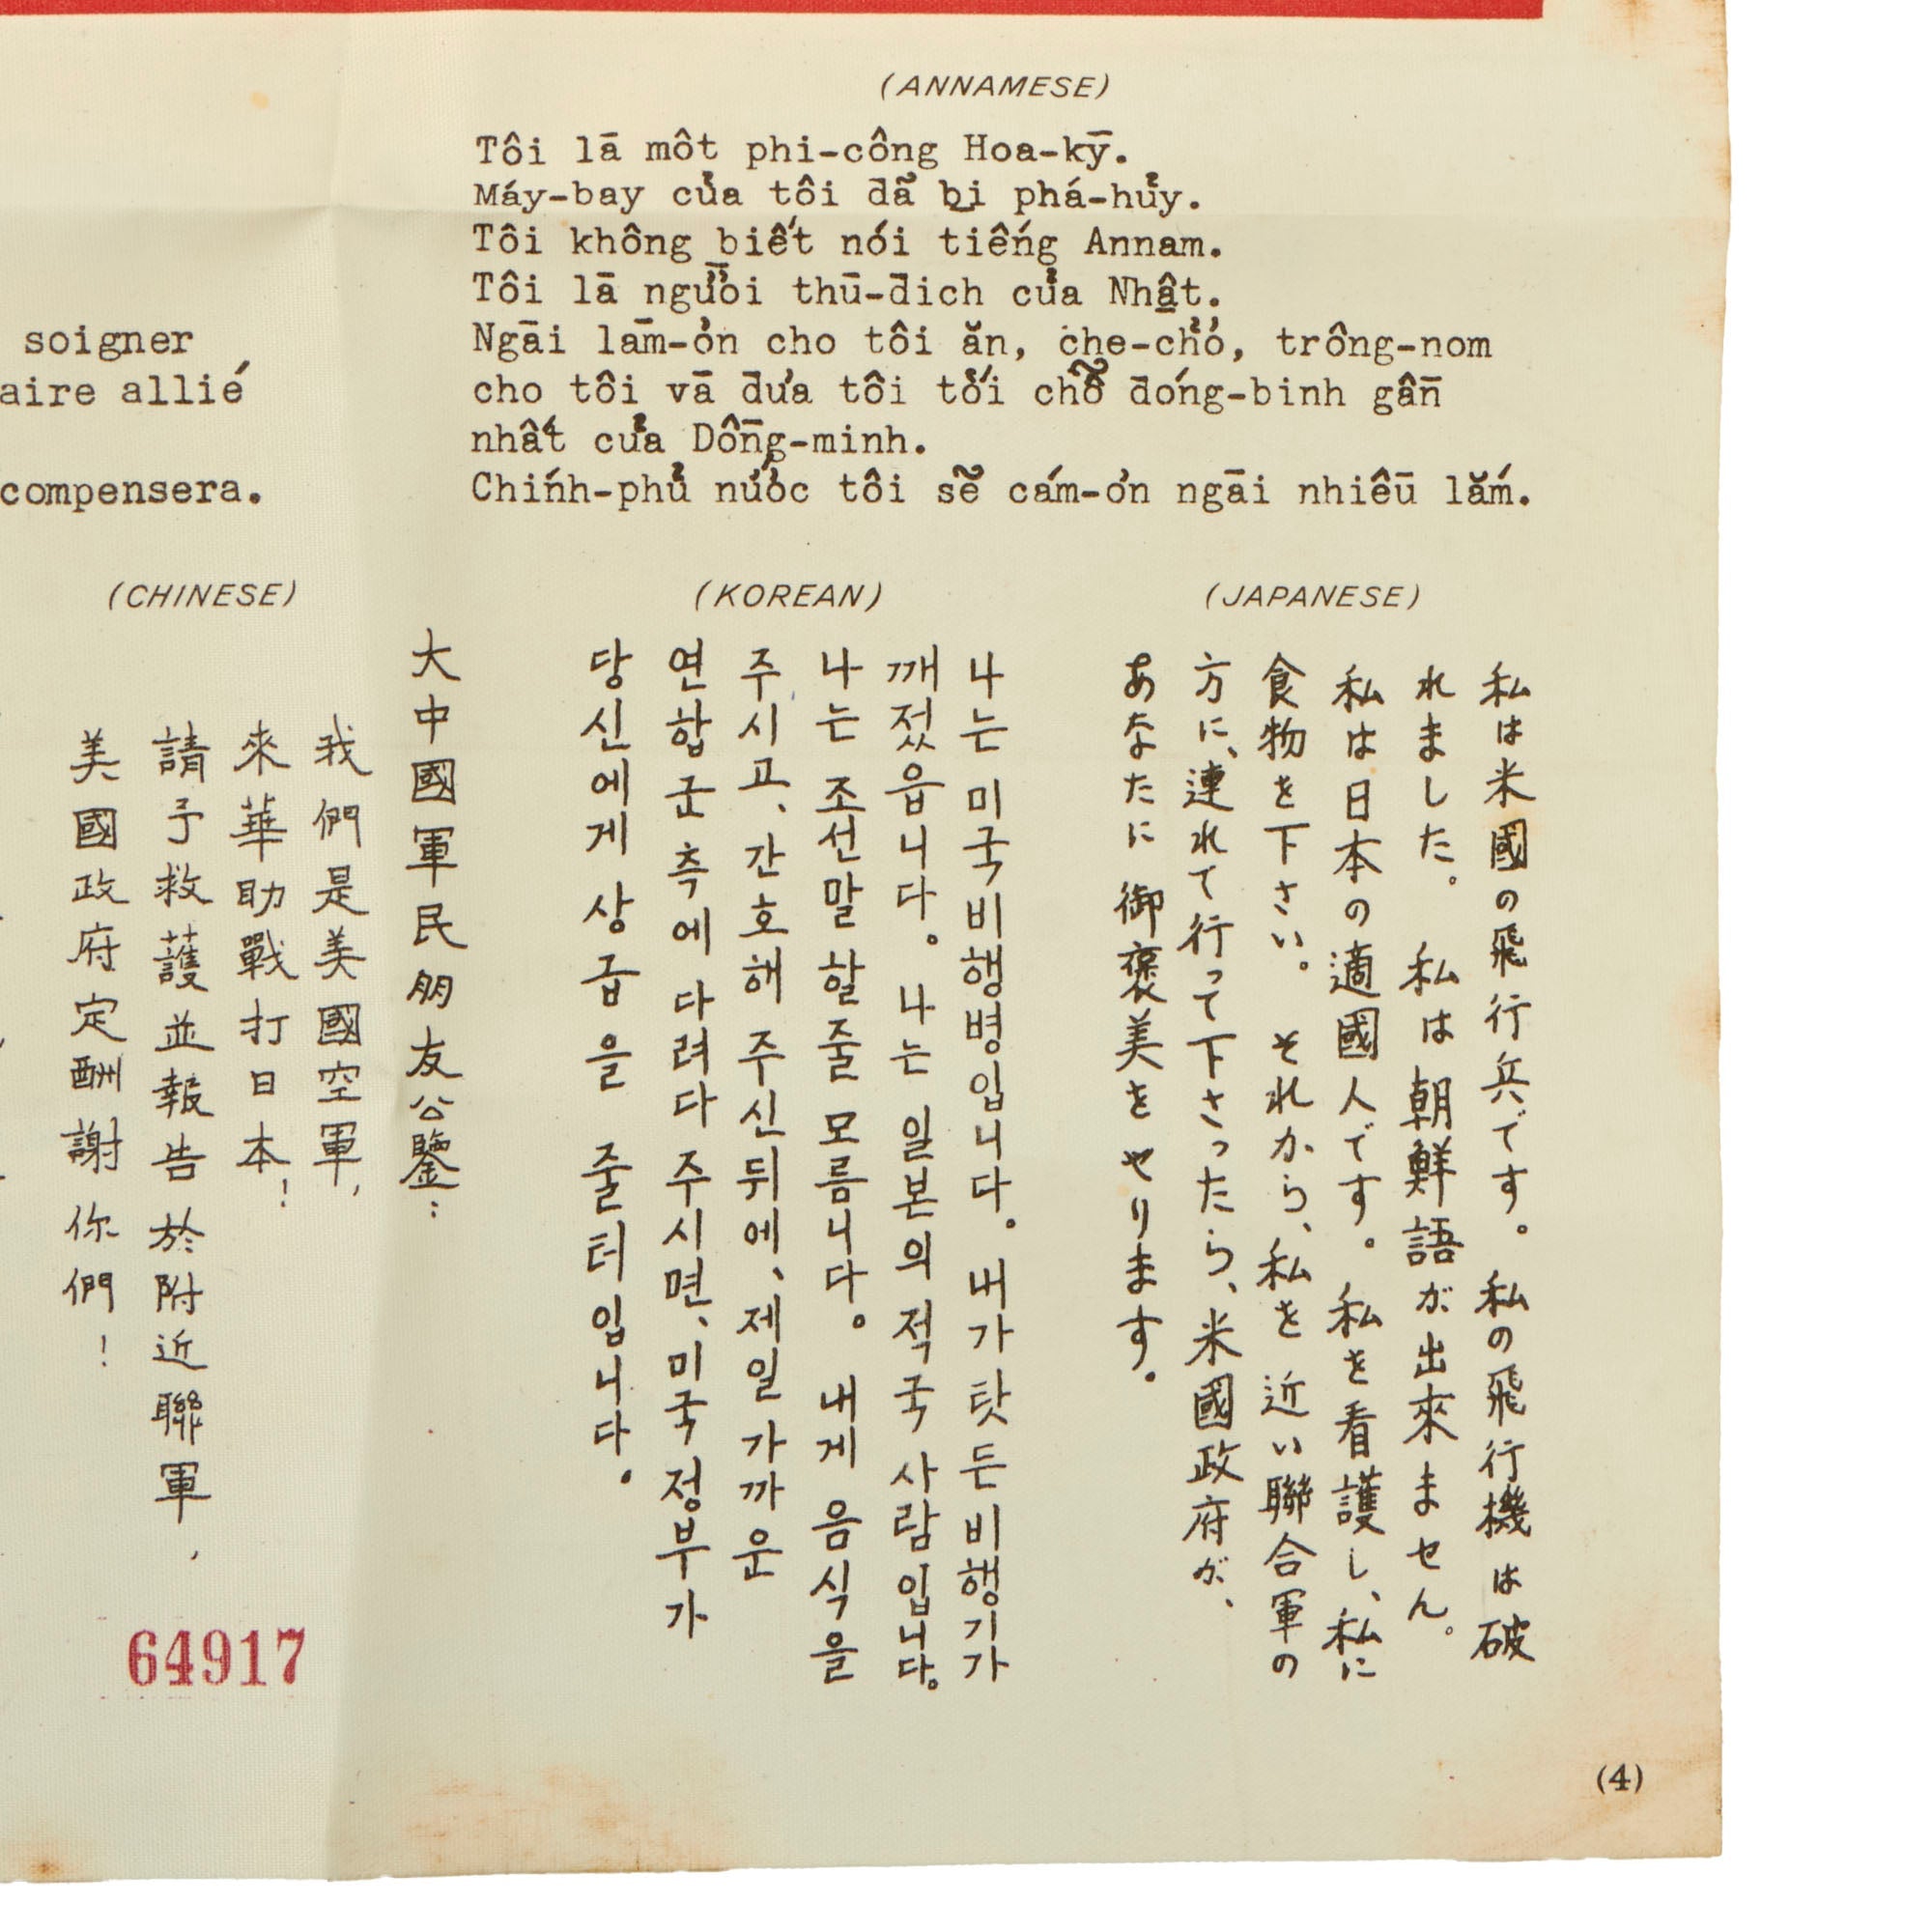 (ANNAMESE)
Tôi lā môt phi-công Hoa-kȳ.
Máy-bay của tôi đã bị phá-hủy.
Tôi không biết nói tiếng Annam.
Tôi lā người thū-đich của Nhật.
Ngāi lām-ơn cho tôi ăn, che-chở, trông-nom
cho tôi vā đưa tôi tới chỗ đóng-binh gần
nhất của Dồng-minh.
Chính-phủ nước tôi sẽ cám-ơn ngāi nhiêū lắm.
soigner
aire allié
compensera.
(CHINESE)
大中國軍民朋友公鑒：
我們是美國空軍，
來華助戰打日本！
請予救護並報告於附近聯軍，
美國政府定酬謝你們！
(KOREAN)
나는 미국비행병입니다。 내가 탓든비행기가
깨젔읍니다。 나는 일본의 적국 사람입니다。
나는 조선말 할줄 모름니다。 내게 음식을
주시고、간호해 주신뒤에、제일 가까운
연합군 측에 다려다 주시면、미국 정부가
당신에게 상급을 줄터입니다。
(JAPANESE)
私は米國の飛行兵です。私の飛行機は破
れました。 私は朝鮮語が出來ません。
私は日本の適國人です。私を看護し、私に
食物を下さい。 それから、私を近い聯合軍の
方に、連れて行って下さったら、米國政府が、
あなたに御褒美をやります。
64917
(4)